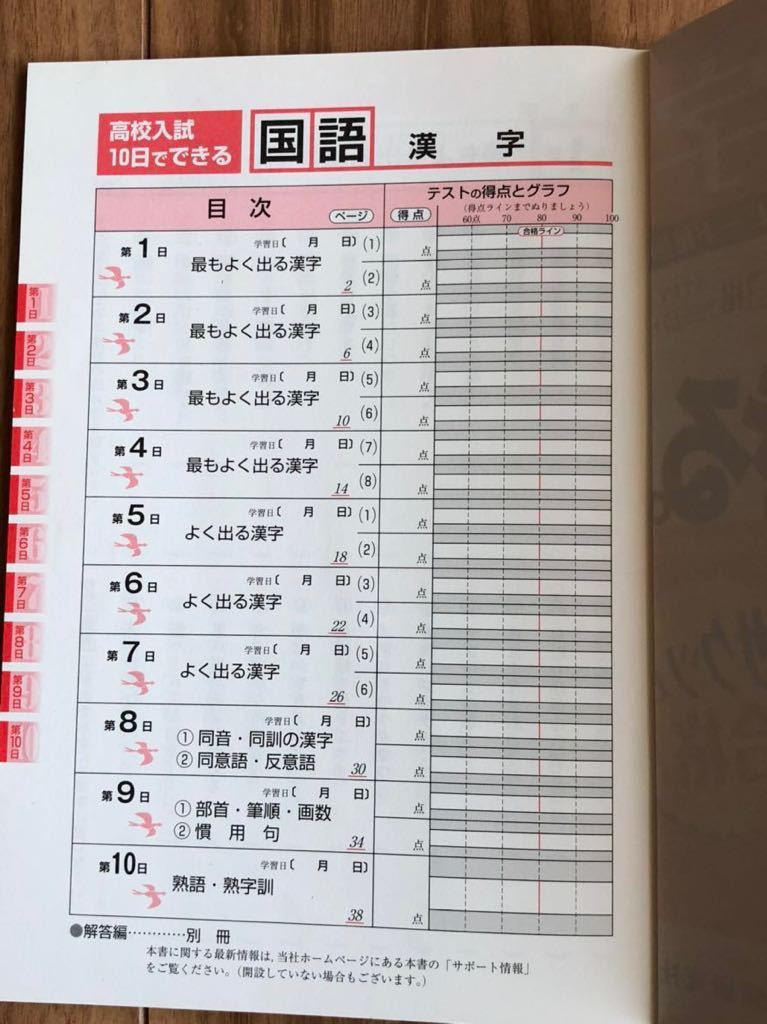 高校入試
10日でできる
国語 漢字
目次 ページ 得点 テストの得点とグラフ
(得点ラインまでぬりましょう)
60点 70 80 90 100
合格ライン
第1日 学習日〔 月 日〕 (1) 点
最もよく出る漢字 2 (2) 点
第2日 学習日〔 月 日〕 (3) 点
最もよく出る漢字 6 (4) 点
第3日 学習日〔 月 日〕 (5) 点
最もよく出る漢字 10 (6) 点
第4日 学習日〔 月 日〕 (7) 点
最もよく出る漢字 14 (8) 点
第5日 学習日〔 月 日〕 (1) 点
よく出る漢字 18 (2) 点
第6日 学習日〔 月 日〕 (3) 点
よく出る漢字 22 (4) 点
第7日 学習日〔 月 日〕 (5) 点
よく出る漢字 26 (6) 点
第8日 学習日〔 月 日〕
① 同音・同訓の漢字 点
② 同意語・反意語 30 点
第9日 学習日〔 月 日〕
① 部首・筆順・画数 点
② 慣用句 34 点
第10日 学習日〔 月 日〕
熟語・熟字訓 38 点
●解答編…………別冊
本書に関する最新情報は,当社ホームページにある本書の「サポート情報」
をご覧ください。(開設していない場合もございます。)
第1日
第2日
第3日
第4日
第5日
第6日
第7日
第8日
第9日
第10日